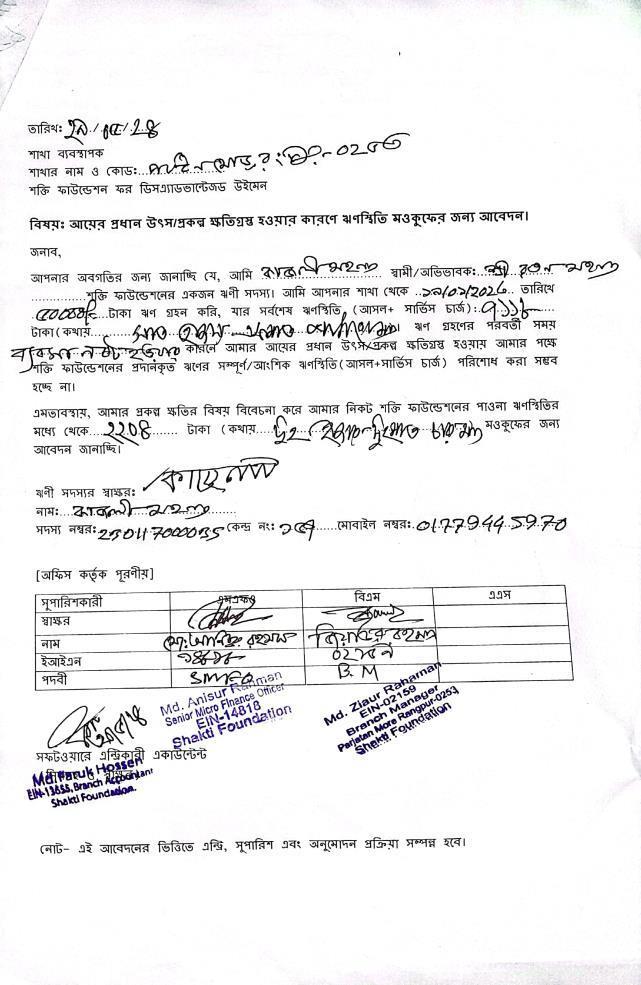 তারিখ: ২৯/০৫/২৪
শাখা ব্যবস্থাপক
শাখার নাম ও কোড: পর্যটন মোড়, রং-০২৫৩
শক্তি ফাউন্ডেশন ফর ডিসএ্যাডভান্টেজড উইমেন
বিষয়: আয়ের প্রধান উৎস/প্রকল্প ক্ষতিগ্রস্থ হওয়ার কারণে ঋণস্থিতি মওকুফের জন্য আবেদন।
জনাব,
আপনার অবগতির জন্য জানাচ্ছি যে, আমি কাজলী মহন্ত স্বামী/অভিভাবক: শ্রী রতন মহন্ত
শক্তি ফাউন্ডেশনের একজন ঋণী সদস্য। আমি আপনার শাখা থেকে তারিখে
টাকা ঋণ গ্রহন করি, যার সর্বশেষ ঋণস্থিতি (আসল+ সার্ভিস চার্জ):
টাকা (কথায় ঋণ গ্রহণের পরবর্তী সময়
ব্যবসা নষ্ট হওয়ার কারনে আমার আয়ের প্রধান উৎস/প্রকল্প ক্ষতিগ্রস্থ হওয়ায় আমার পক্ষে
শক্তি ফাউন্ডেশনের প্রদানকৃত ঋণের সম্পূর্ণ/আংশিক ঋণস্থিতি(আসল+সার্ভিস চার্জ) পরিশোধ করা সম্ভব
হচ্ছে না।
এমতাবস্থায়, আমার প্রকল্প ক্ষতির বিষয় বিবেচনা করে আমার নিকট শক্তি ফাউন্ডেশনের পাওনা ঋণস্থিতির
মধ্যে থেকে ২২০৪ টাকা (কথায় দুই হাজার দুইশত চার মাত্র মওকুফের জন্য
আবেদন জানাচ্ছি।
ঋণী সদস্যর স্বাক্ষর:
নাম: কাজলী মহন্ত
সদস্য নম্বর: কেন্দ্র নং: মোবাইল নম্বর: 01779445970
[অফিস কর্তৃক পূরণীয়]
সুপারিশকারী এমএফও বিএম এএস
স্বাক্ষর
নাম মো: আনিছুর রহমান জিয়াউর রহমান
ইআইএন ১৪৮১৮ ০২১৫৯
পদবী SMFO B.M
Md. Anisur Rahman
Senior Micro Finance Officer
EIN-14818
Shakti Foundation
Md. Ziaur Rahaman
EIN-02159
Branch Manager
Parjatan More Rangpur-0253
Shakti Foundation
সফটওয়ারে এন্ট্রিকারী একাউন্টেন্ট
Md. Faruk Hossen
EIN-13655, Branch Accountant
Shakti Foundation.
নোট- এই আবেদনের ভিত্তিতে এন্ট্রি, সুপারিশ এবং অনুমোদন প্রক্রিয়া সম্পন্ন হবে।